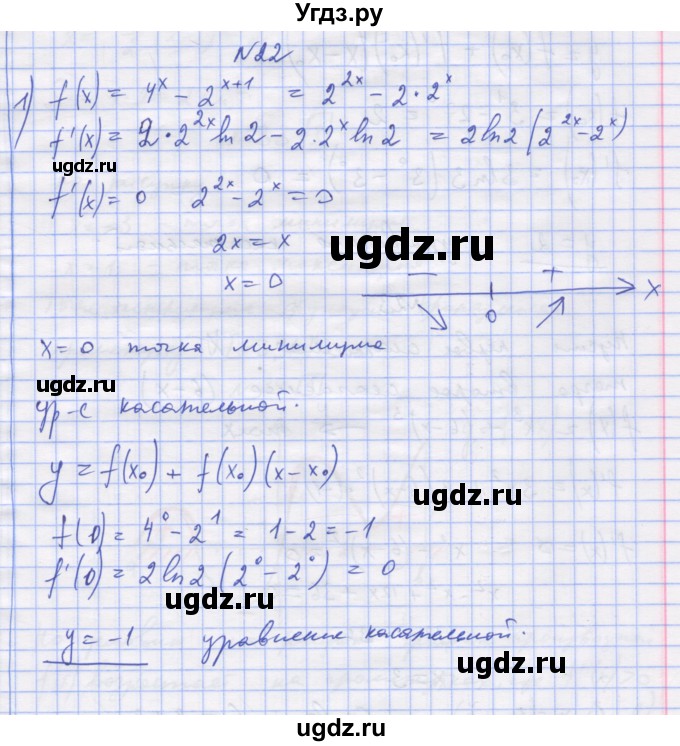 Угдз.ру
N22
1) f(x) = 4^x − 2^{x+1} = 2^{2x} − 2·2^x
f'(x) = 2·2^{2x} ln 2 − 2·2^x ln 2 = 2 ln 2 (2^{2x} − 2^x)
ugdz.ru
f'(x) = 0 2^{2x} − 2^x = 0
ugdz.ru
2x = x
x = 0
− + x
0
x = 0 точка минимума
ugdz.ru
ур-е касательной.
y = f(x₀) + f(x₀)(x − x₀)
ugdz.ru
f(0) = 4^0 − 2^1 = 1 − 2 = −1
f'(0) = 2 ln 2 (2^0 − 2^0) = 0
ugdz.ru
y = −1 уравнение касательной.
ugdz.ru
ugdz.ru